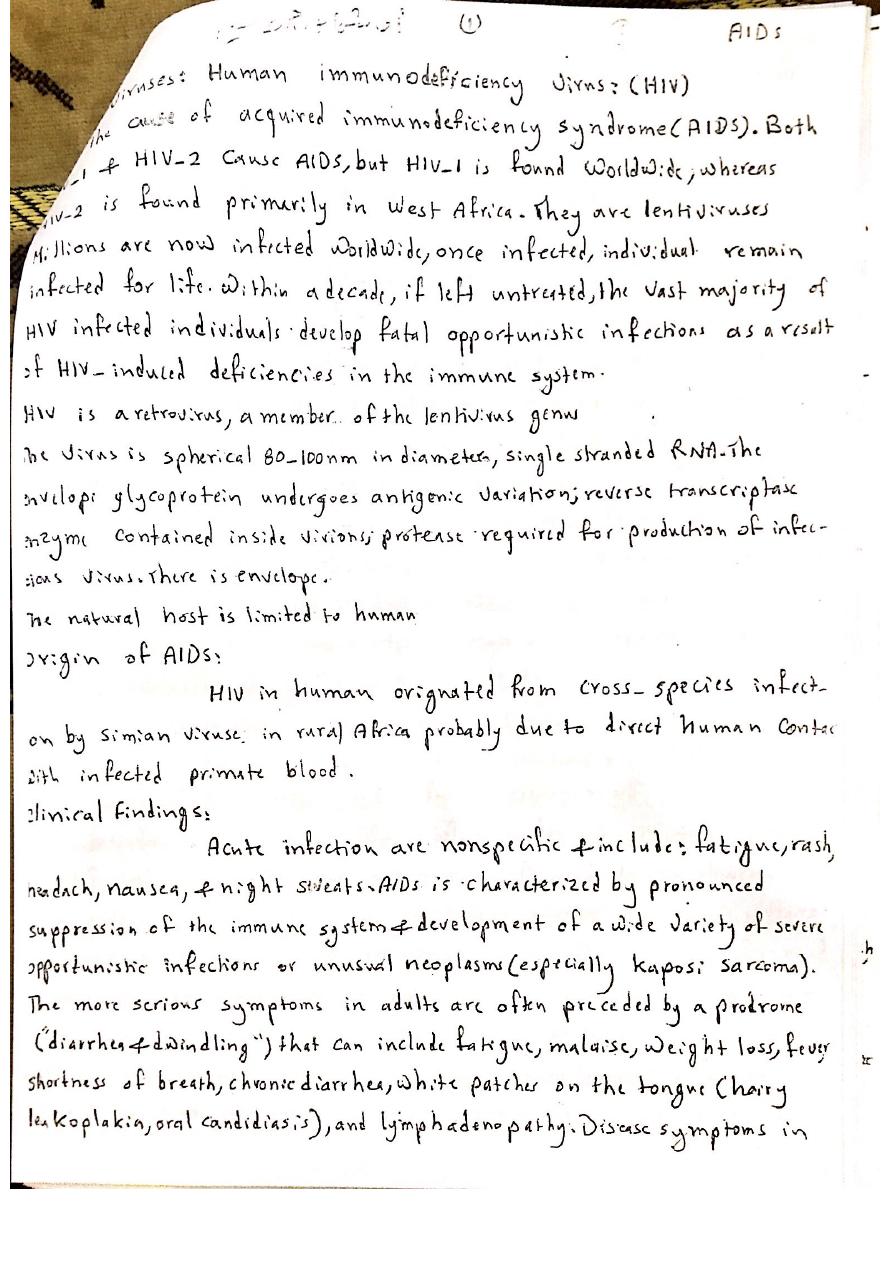 (1) AIDs
viruses: Human immunodeficiency virus: (HIV)
the cause of acquired immunodeficiency syndrome (AIDS). Both
_1 & HIV_2 Cause AIDS, but HIV_1 is found Worldwide; whereas
HIV_2 is found primarily in West Africa. They are lentiviruses
Millions are now infected Worldwide, once infected, individual remain
infected for life. Within a decade, if left untreated, the vast majority of
HIV infected individuals develop fatal opportunistic infections as a result
of HIV_induced deficiencies in the immune system.
HIV is a retrovirus, a member of the lentivirus genus
he virus is spherical 80_100nm in diameter, single stranded RNA. The
nvelope glycoprotein undergoes antigenic variation; reverse transcriptase
enzyme contained inside virions; protease required for production of infec-
tious virus. There is envelope.
he natural host is limited to human
origin of AIDS:
HIV in human orignated from cross_species infect-
on by simian viruse in rural Africa probably due to direct human contac
with infected primate blood.
clinical findings:
Acute infection are nonspecific & include: fatigue, rash,
headach, nausea, & night sweats. AIDs is characterized by pronounced
suppression of the immune system & development of a wide variety of severe
opportunistic infections or unusual neoplasms (especially Kaposi sarcoma).
The more serious symptoms in adults are often preceded by a prodrome
("diarrhea & dwindling") that can include fatigue, malaise, weight loss, fever
shortness of breath, chronic diarrhea, white patches on the tongue (hairy
leukoplakia, oral candidiasis), and lymphadenopathy. Disease symptoms in